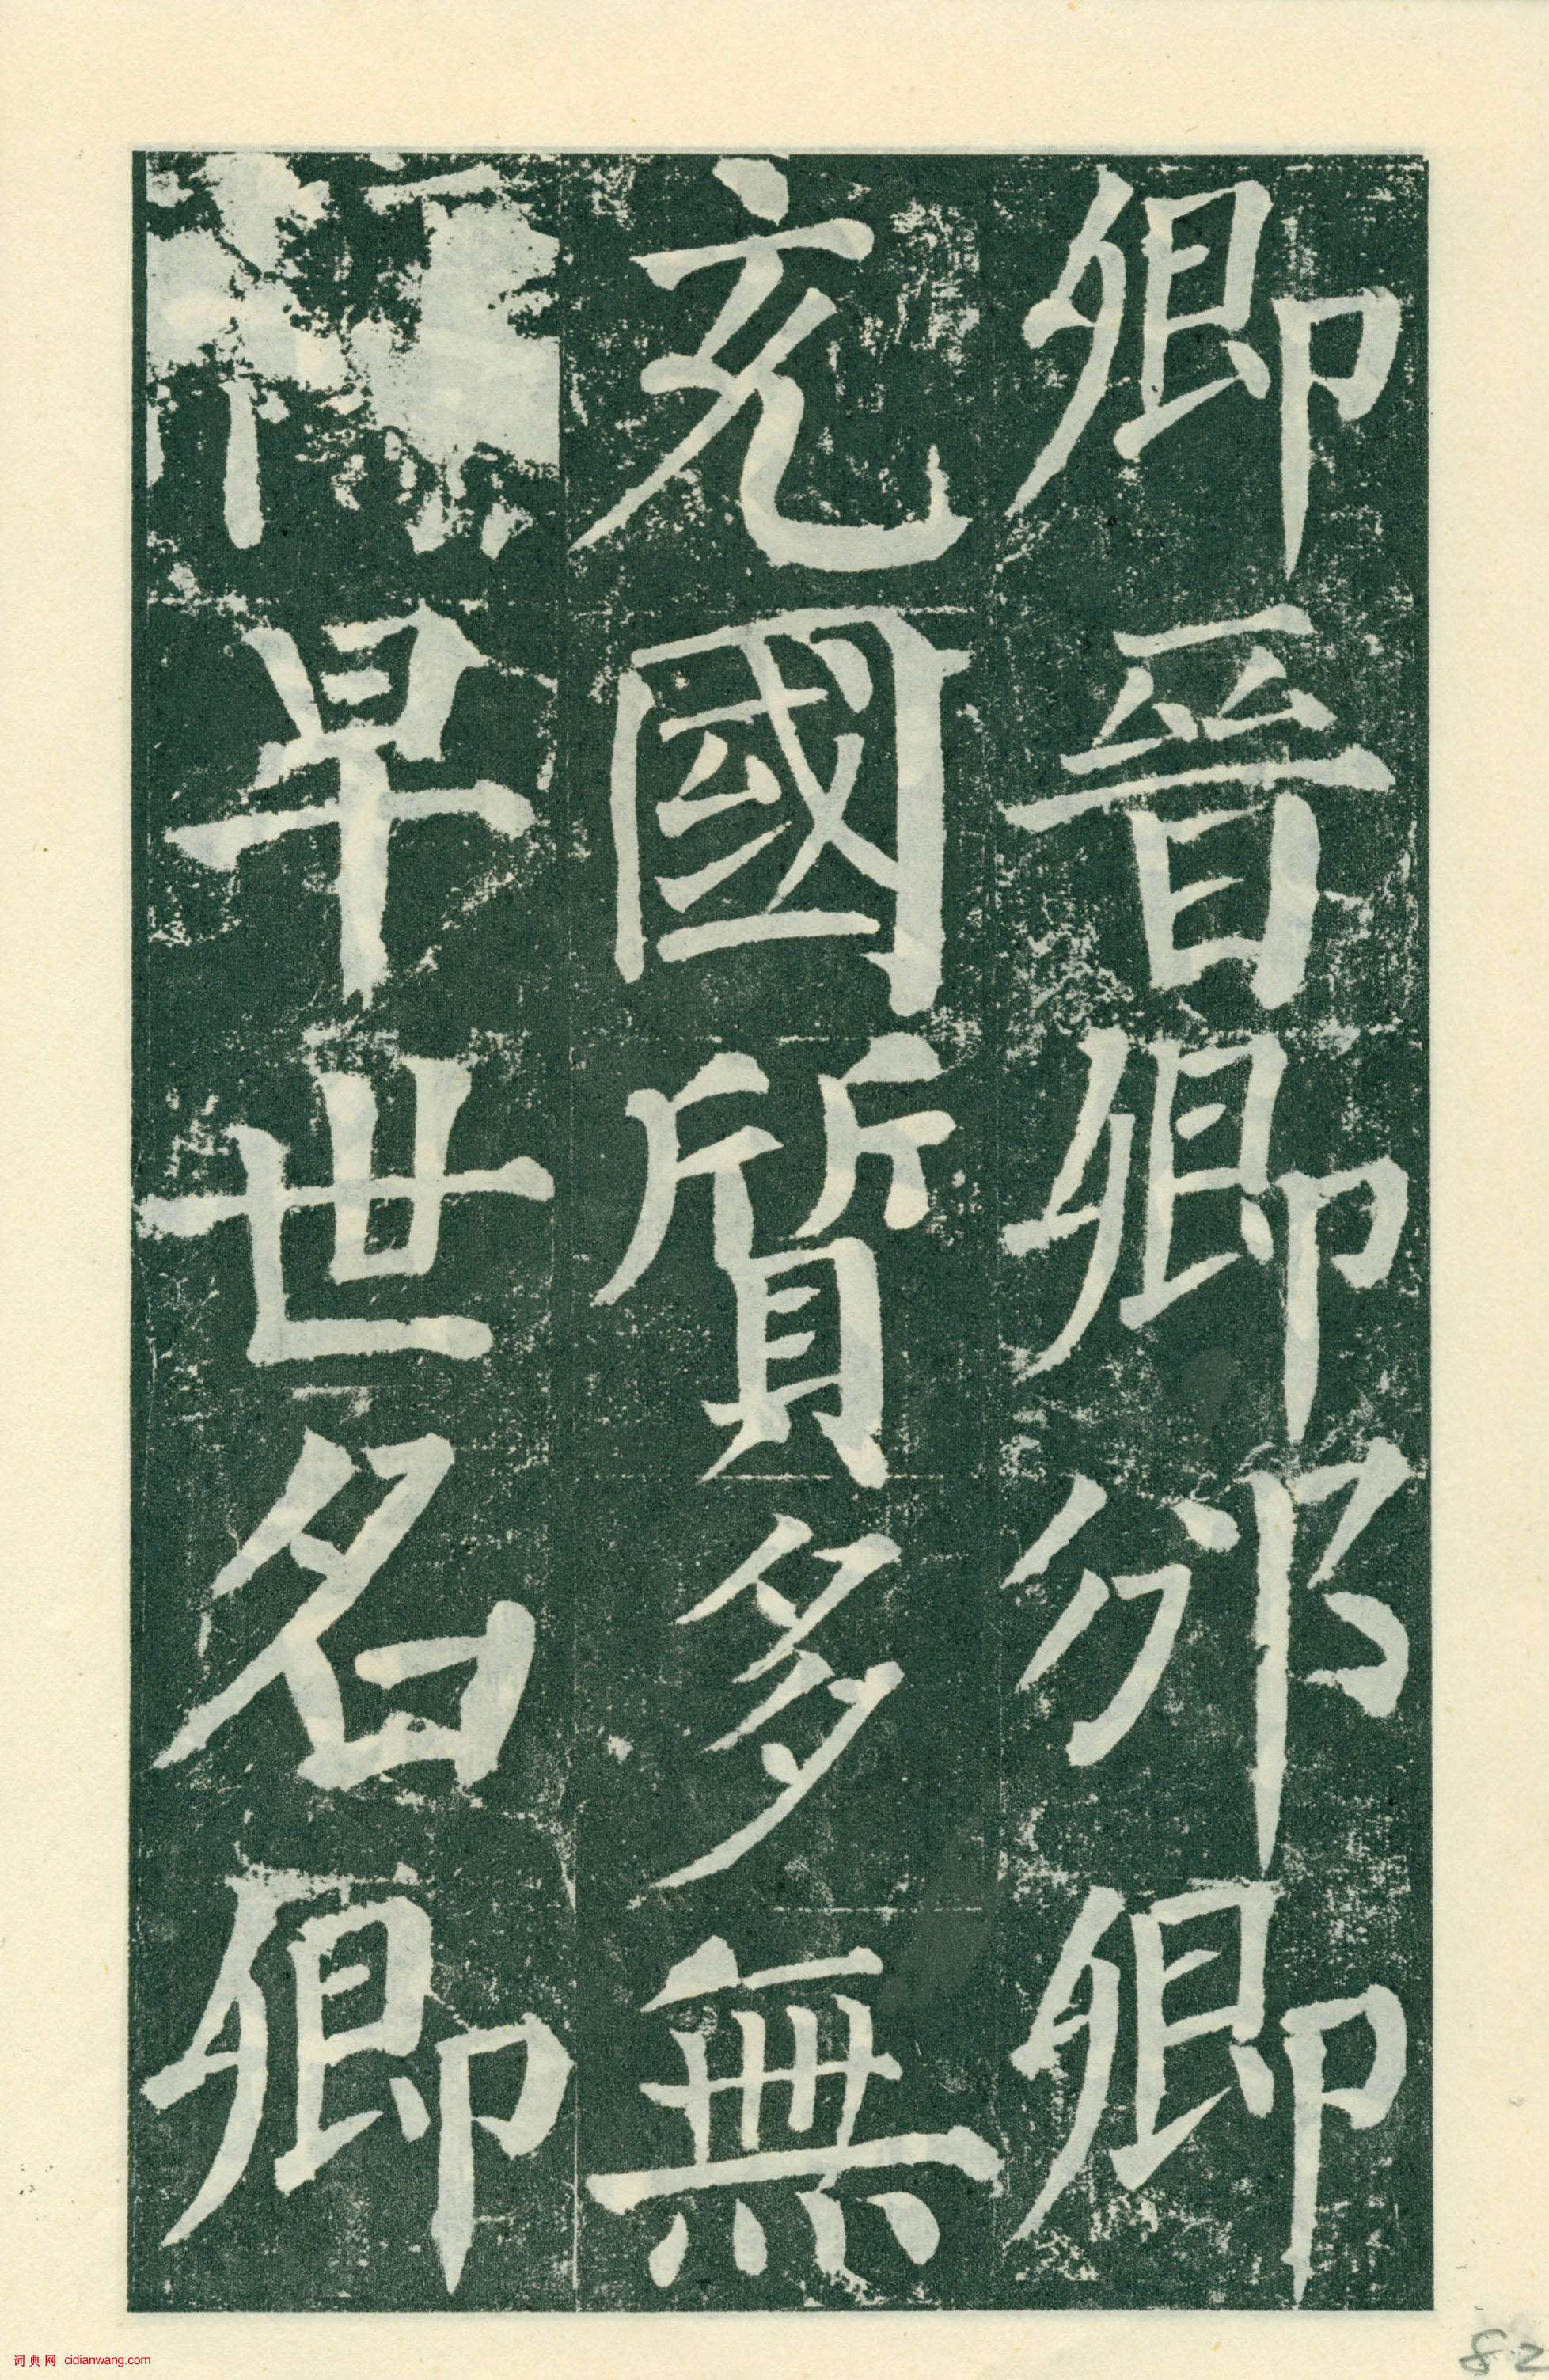 卿晉卿邠卿
充國質多無
早世名卿
词典网 cidianwang.com
82